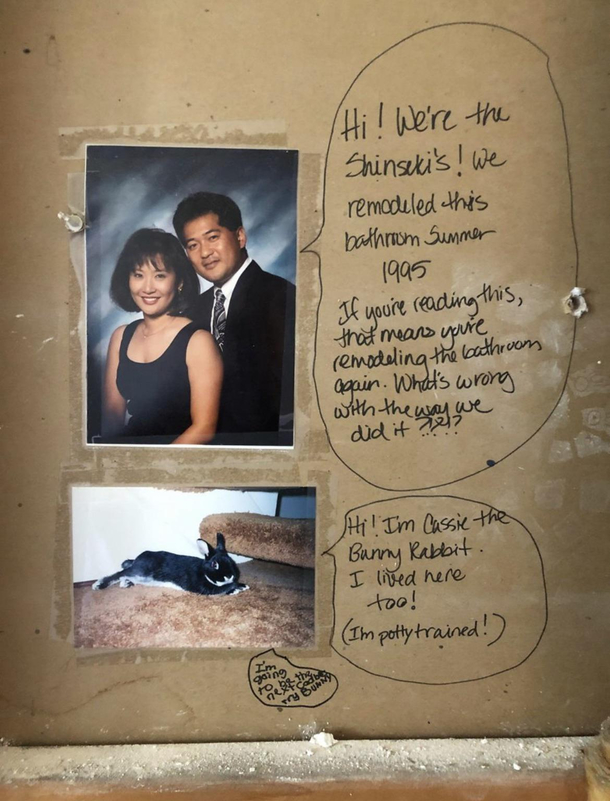 Hi! We're the
Shinseki's! We
remodeled this
bathroom Summer
1995
If you're reading this,
that means you're
remodeling the bathroom
again. What's wrong
with the way we
did it ????
Hi! I'm Cassie the
Bunny Rabbit.
I lived here
too!
(I'm potty trained!)
I'm
going
to be the
next Cadbury
Bunny